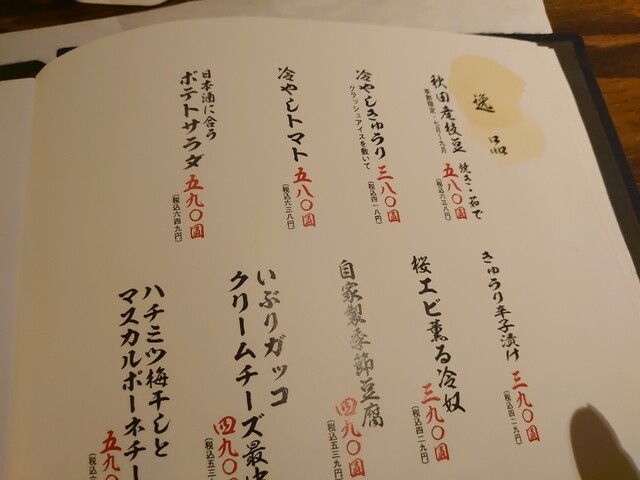 逸品
秋田産枝豆 焼き・茹で
季節限定・七月～九月
五八〇圓
(税込六三八円)
冷やしきゅうり
クラッシュアイスを敷いて
三八〇圓
(税込四一八円)
冷やしトマト
五八〇圓
(税込六三八円)
日本酒に合う
ポテトサラダ
五九〇圓
(税込六四九円)
きゅうり辛子漬け
三九〇圓
(税込四二九円)
桜エビ薫る冷奴
三九〇圓
(税込四二九円)
自家製季節豆腐
四九〇圓
(税込五三九円)
いぶりガッコ
クリームチーズ最中
四九〇
(税込五三
ハチミツ梅干しと
マスカルポーネチー
五九〇
(税込